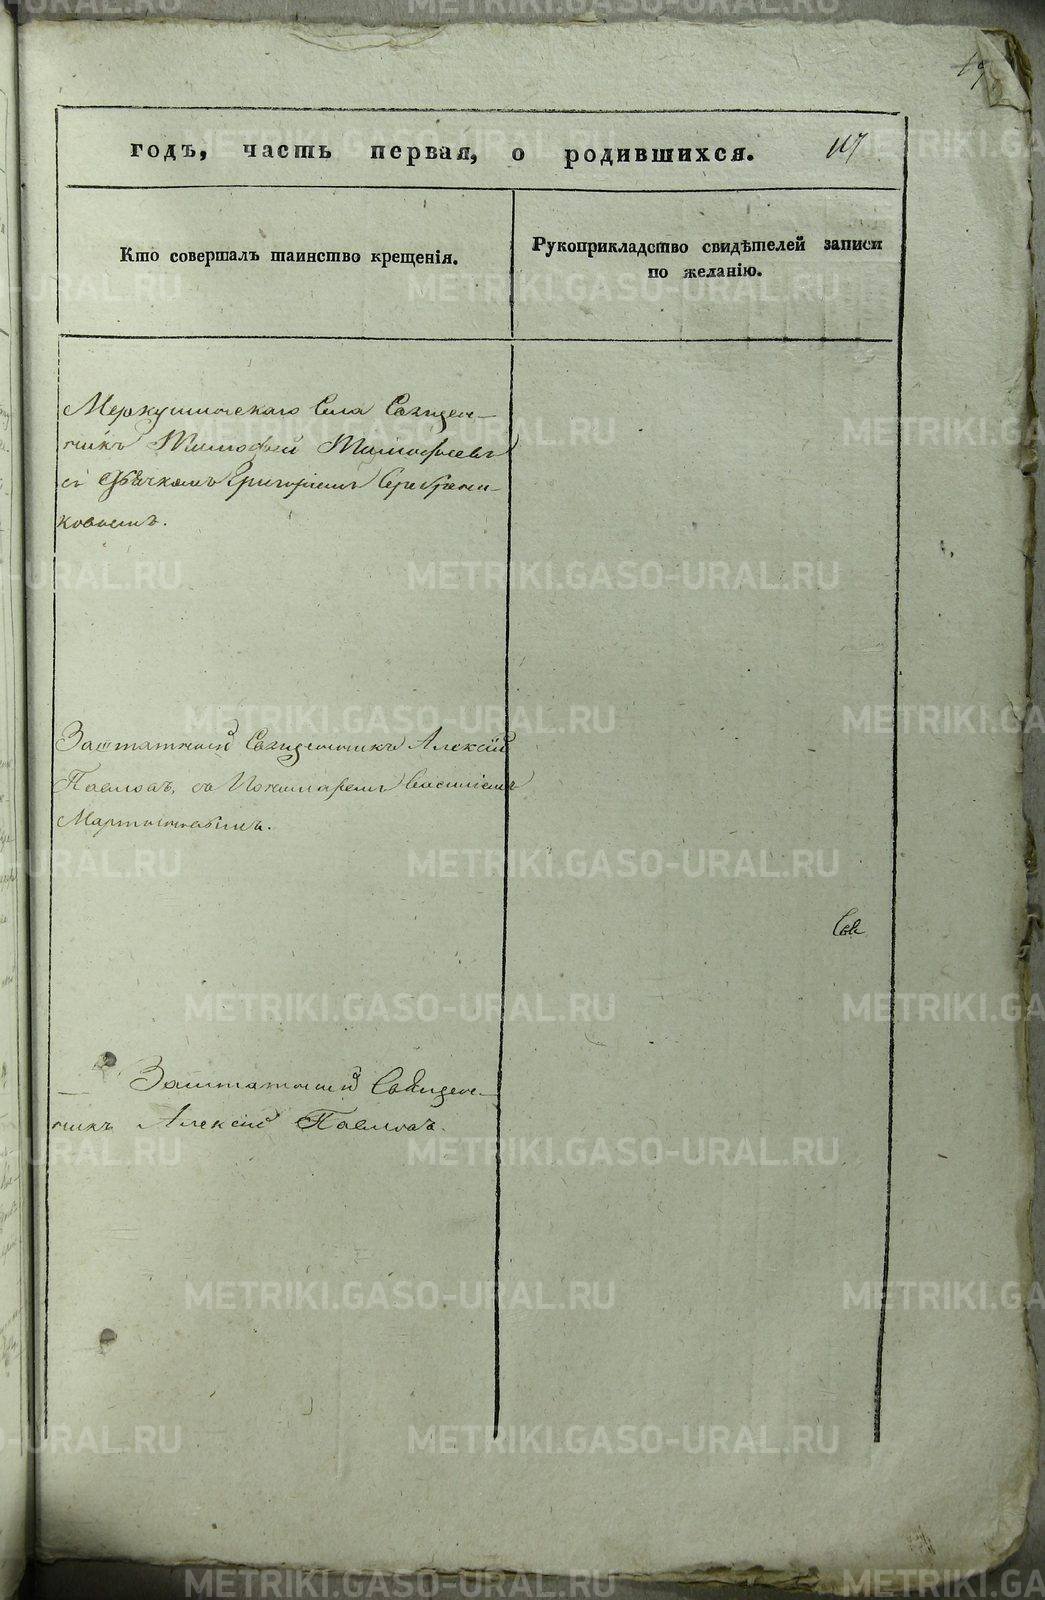 годъ, часть первая, о родившихся. 117
Кто совершалъ таинство крещенія.
Рукоприкладство свидѣтелей записи
по желанію.
Меркушинскаго Села Священ-
никъ Тимофей Тимофеевъ
съ Дьячкомъ Григоріемъ Серебрени-
ковымъ.
Заштатный Священникъ Алексій
Павловъ, съ Пономаремъ Василіемъ
Мартыновымъ.
Заштатный Священ-
никъ Алексій Павловъ.
METRIKI.GASO-URAL.RU